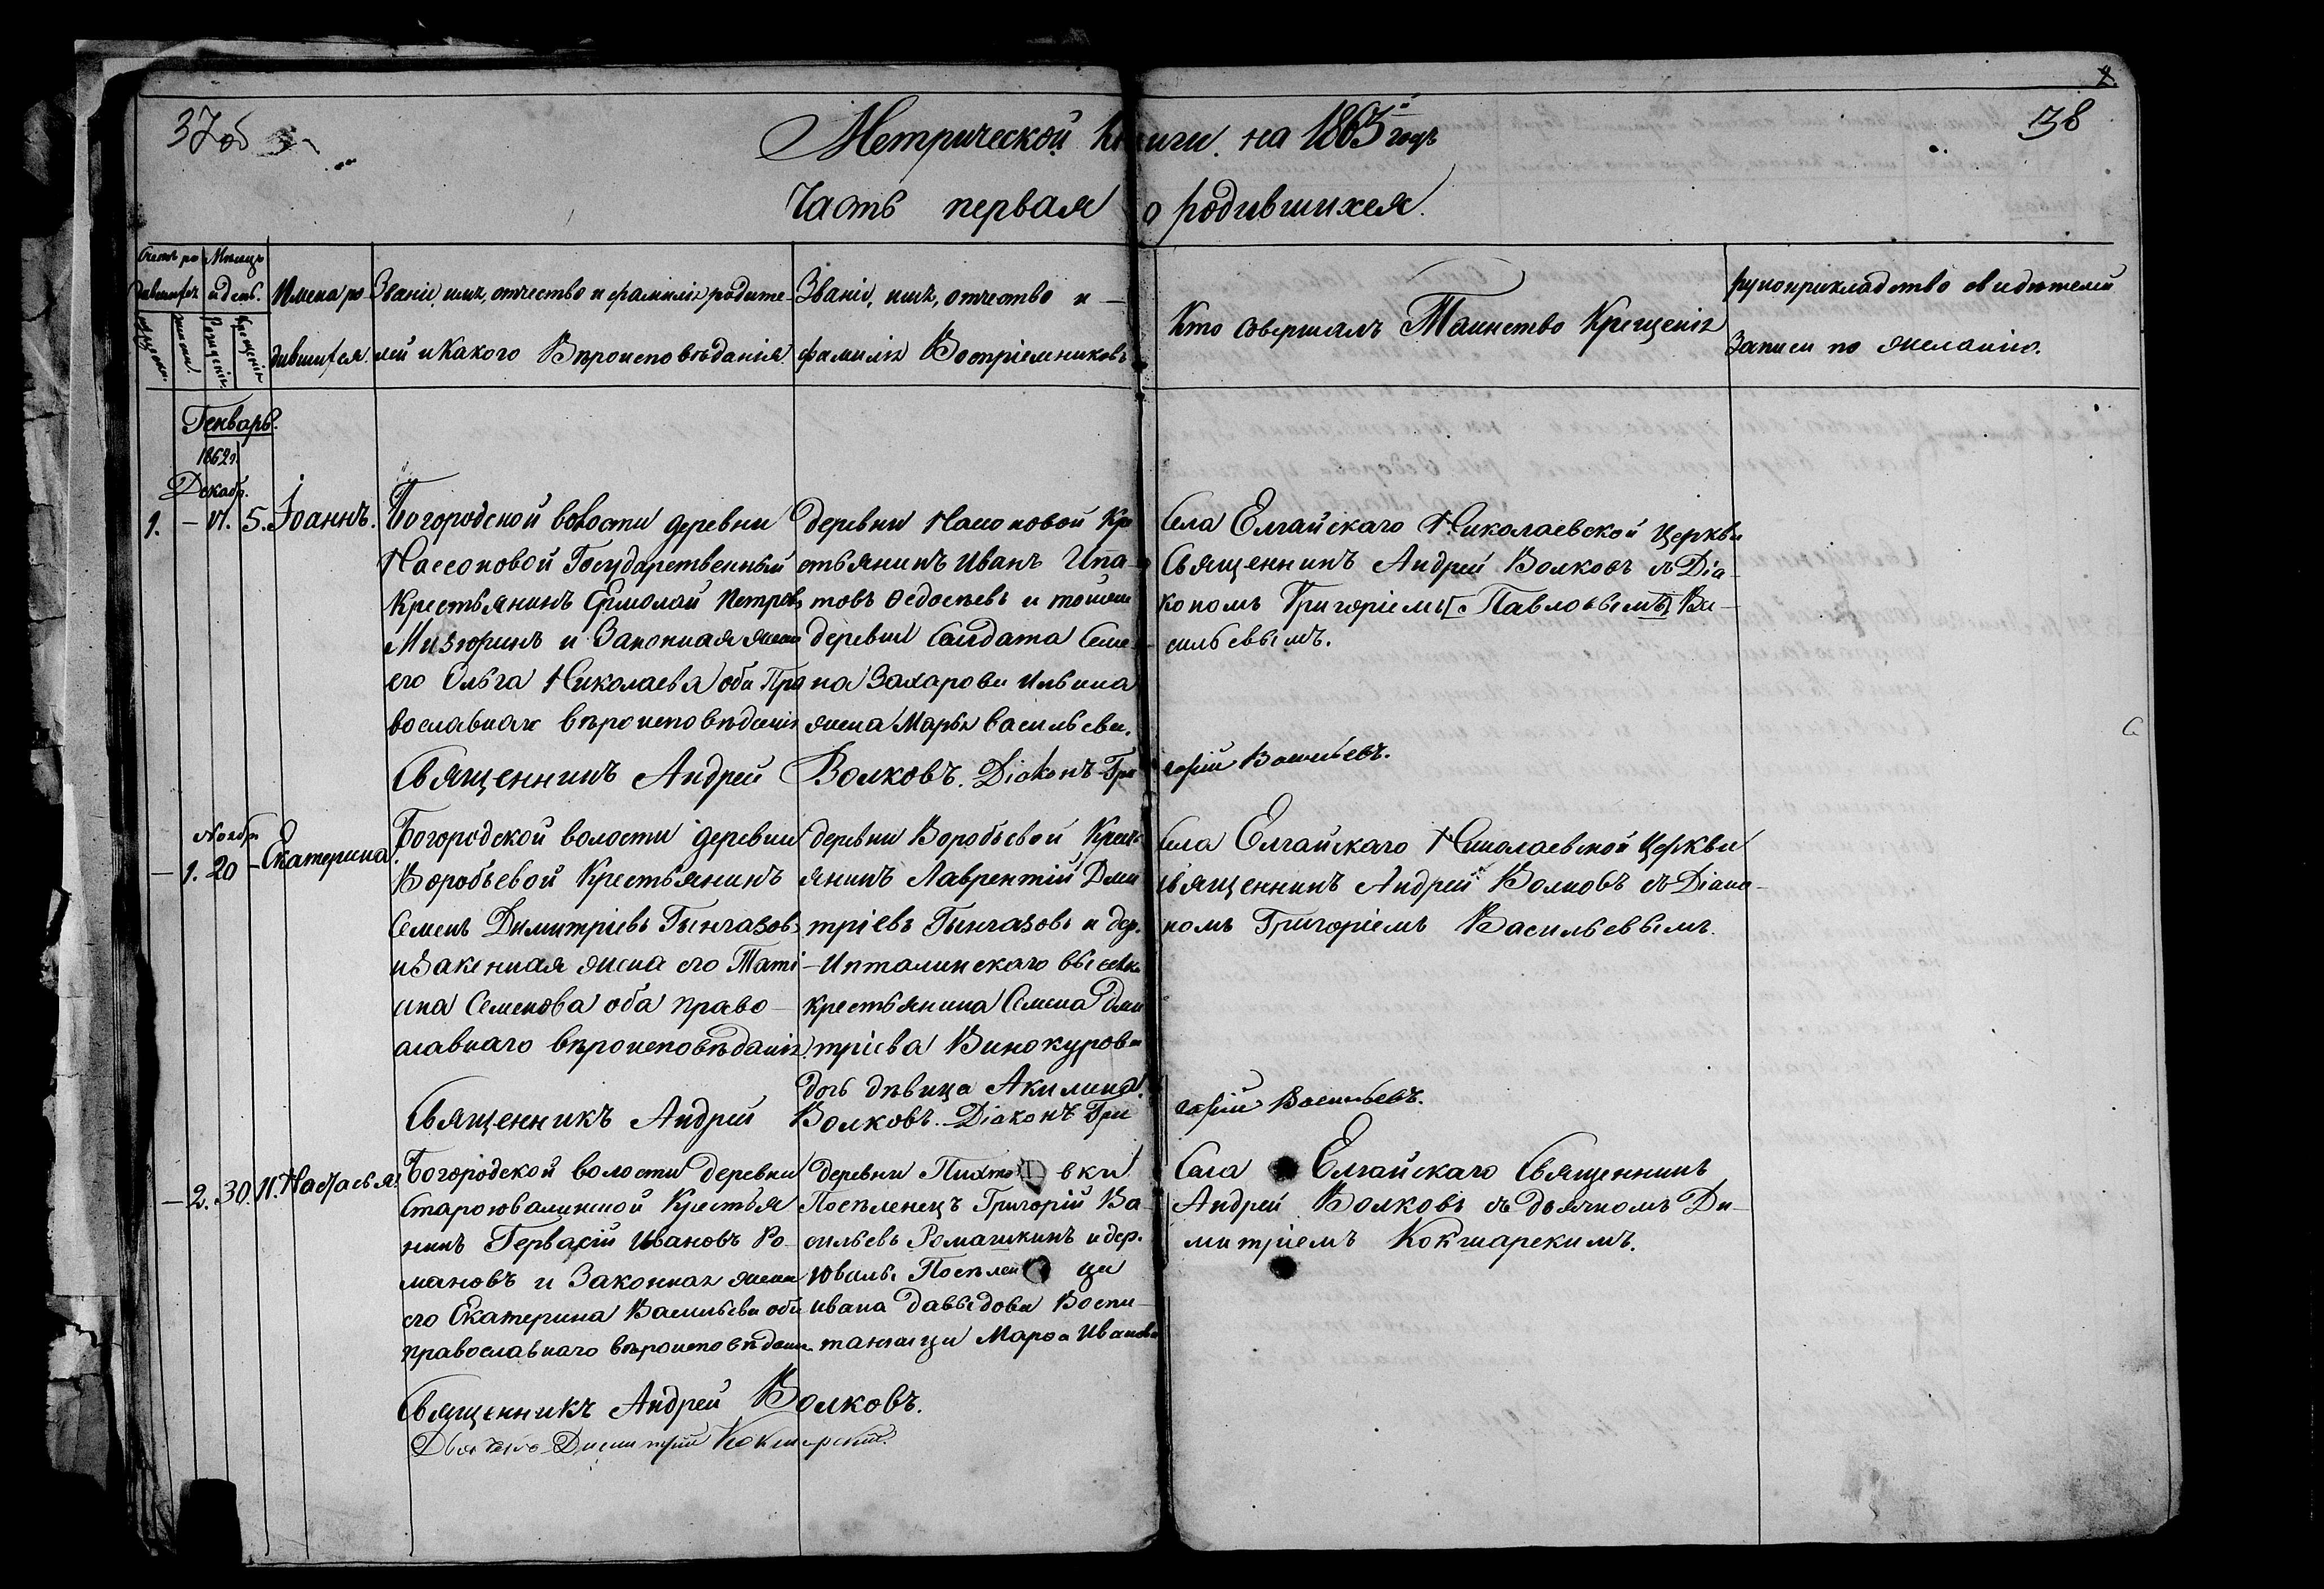 2.
37об
38
Метрической книги на 1863 годъ
Часть первая о родившихся.
Счетъ ро
дившихся
Мѣсяцъ
и день.
рожденія
крещенія
Имена ро
дившихся.
Званіе, имя, отчество и фамилія родите
лей и какого Вѣроисповѣданія
Званіе, имя, отчество и —
фамилія Воспріемниковъ
Кто совершалъ Таинство Крещенія
рукоприкладство свидѣтелей
записи по желанію.
Генварь.
1862г.
Декабр.
1. — 17. 5. Іоаннъ.
Богородской волости деревни
Нассоновой Государственный
Крестьянинъ Ермолай Петровъ
Мизюринъ и Законная жена
его Ольга Николаева оба Пра
вославнаго вѣроисповѣданія
деревни Насоновой Кре
стьянинъ Иванъ Ипа-
товъ Ѳедосѣевъ и тойже
деревни Солдата Семе-
на Захарова Ильина
жена Марья Васильева.
Села Елгайскаго Николаевской Церкви
Священникъ Андрей Волковъ съ Діа-
кономъ Григоріемъ [Павловымъ] Ва-
сильевымъ.
Священникъ Андрей Волковъ. Діаконъ Гри
горій Васильевъ.
Ноябр
— 1. 20 — Екатерина.
Богородской волости деревни
Воробьевой Крестьянинъ
Семенъ Димитріевъ Гынгазовъ
и Законная жена его Таті
ана Семенова оба право —
славнаго вѣроисповѣданія.
деревни Воробьевой Кресть
янинъ Лаврентій Дми
тріевъ Гынгазовъ и дер.
— Ипталинскаго выселка
крестьянина Семена Дми
тріева Винокурова
дочь дѣвица Акилина.
Села Елгайскаго Николаевской Церкви
Священникъ Андрей Волковъ съ Діако-
номъ Григоріемъ Васильевымъ.
Священникъ Андрей Волковъ. Діаконъ Гри
горій Васильевъ.
— 2. 30. 11. Настасья.
Богородской волости деревни
Староювалинской Крестья
нинъ Гервасій Ивановъ Ро-
мановъ и Законная жена
его Екатерина Васильева оба
православнаго вѣроисповѣданія
деревни Пихтовки
Поселенецъ Григорій Ва-
сильевъ Ромашкинъ и дер.
Ювалы Поселенца
Ивана Давыдова Воспи-
танница Марѳа Иванова
Села Елгайскаго Священникъ
Андрей Волковъ съ дьячкомъ Ди-
митріемъ Кокшарскимъ.
Священникъ Андрей Волковъ.
Дьячекъ Димитрій Кокшарскій.